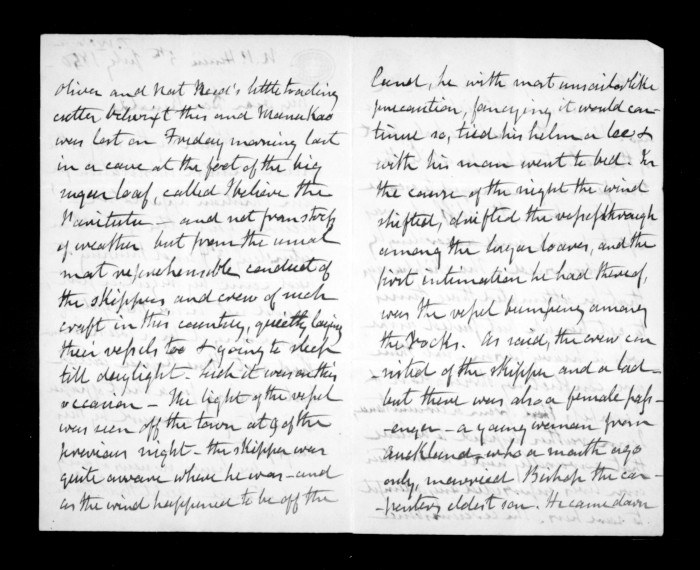 Oliver and Nat Reed's little trading
cutter betwixt this and Manakao
was lost on Friday morning last
in a cave at the foot of the big
sugar loaf, called I believe the
— and not from stress
of weather but from the usual
most reprehensible conduct of
the skippers and crew of such
craft in this country, quietly laying
their vessels too & going to sleep
till daylight. Such it was on this
occasion — The light of the vessel
was seen off the town at 9 of the
previous night. the skipper was
quite aware where he was — and
as the wind happened to be off the
land, he with most unsailorlike
precaution, fancying it would con-
tinue so, tied his helm a lee &
with his man went to bed. In
the course of the night the wind
shifted, drifted the vessel through
among the sugar loaves, and the
first intimation he had thereof,
was the vessel bumping among
the rocks. As said, the crew con-
sisted of the skipper and a lad —
but there was also a female pass-
-enger — a young woman from
Auckland — who a month ago
only, married Bishop the car-
-penters eldest son. He came down